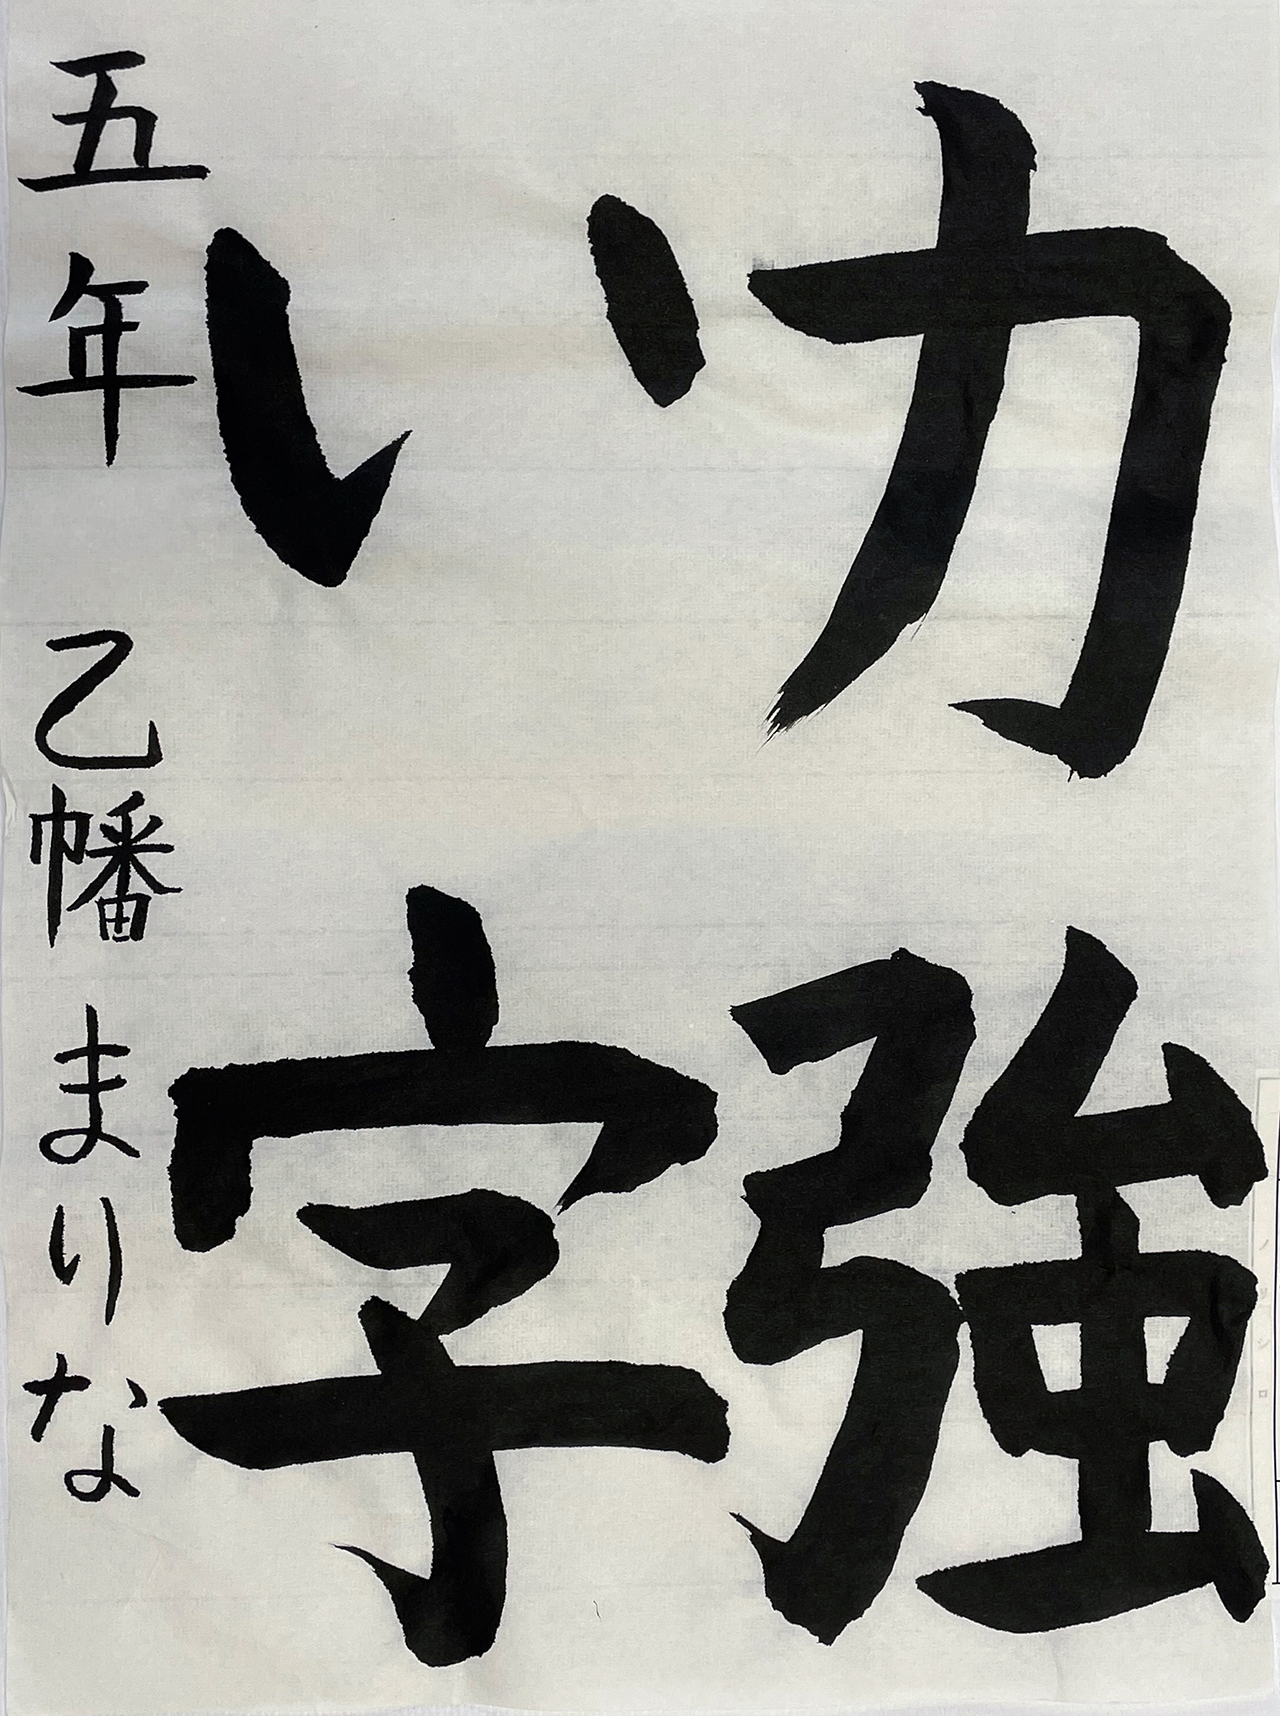 力強
い字
五年 乙幡まりな